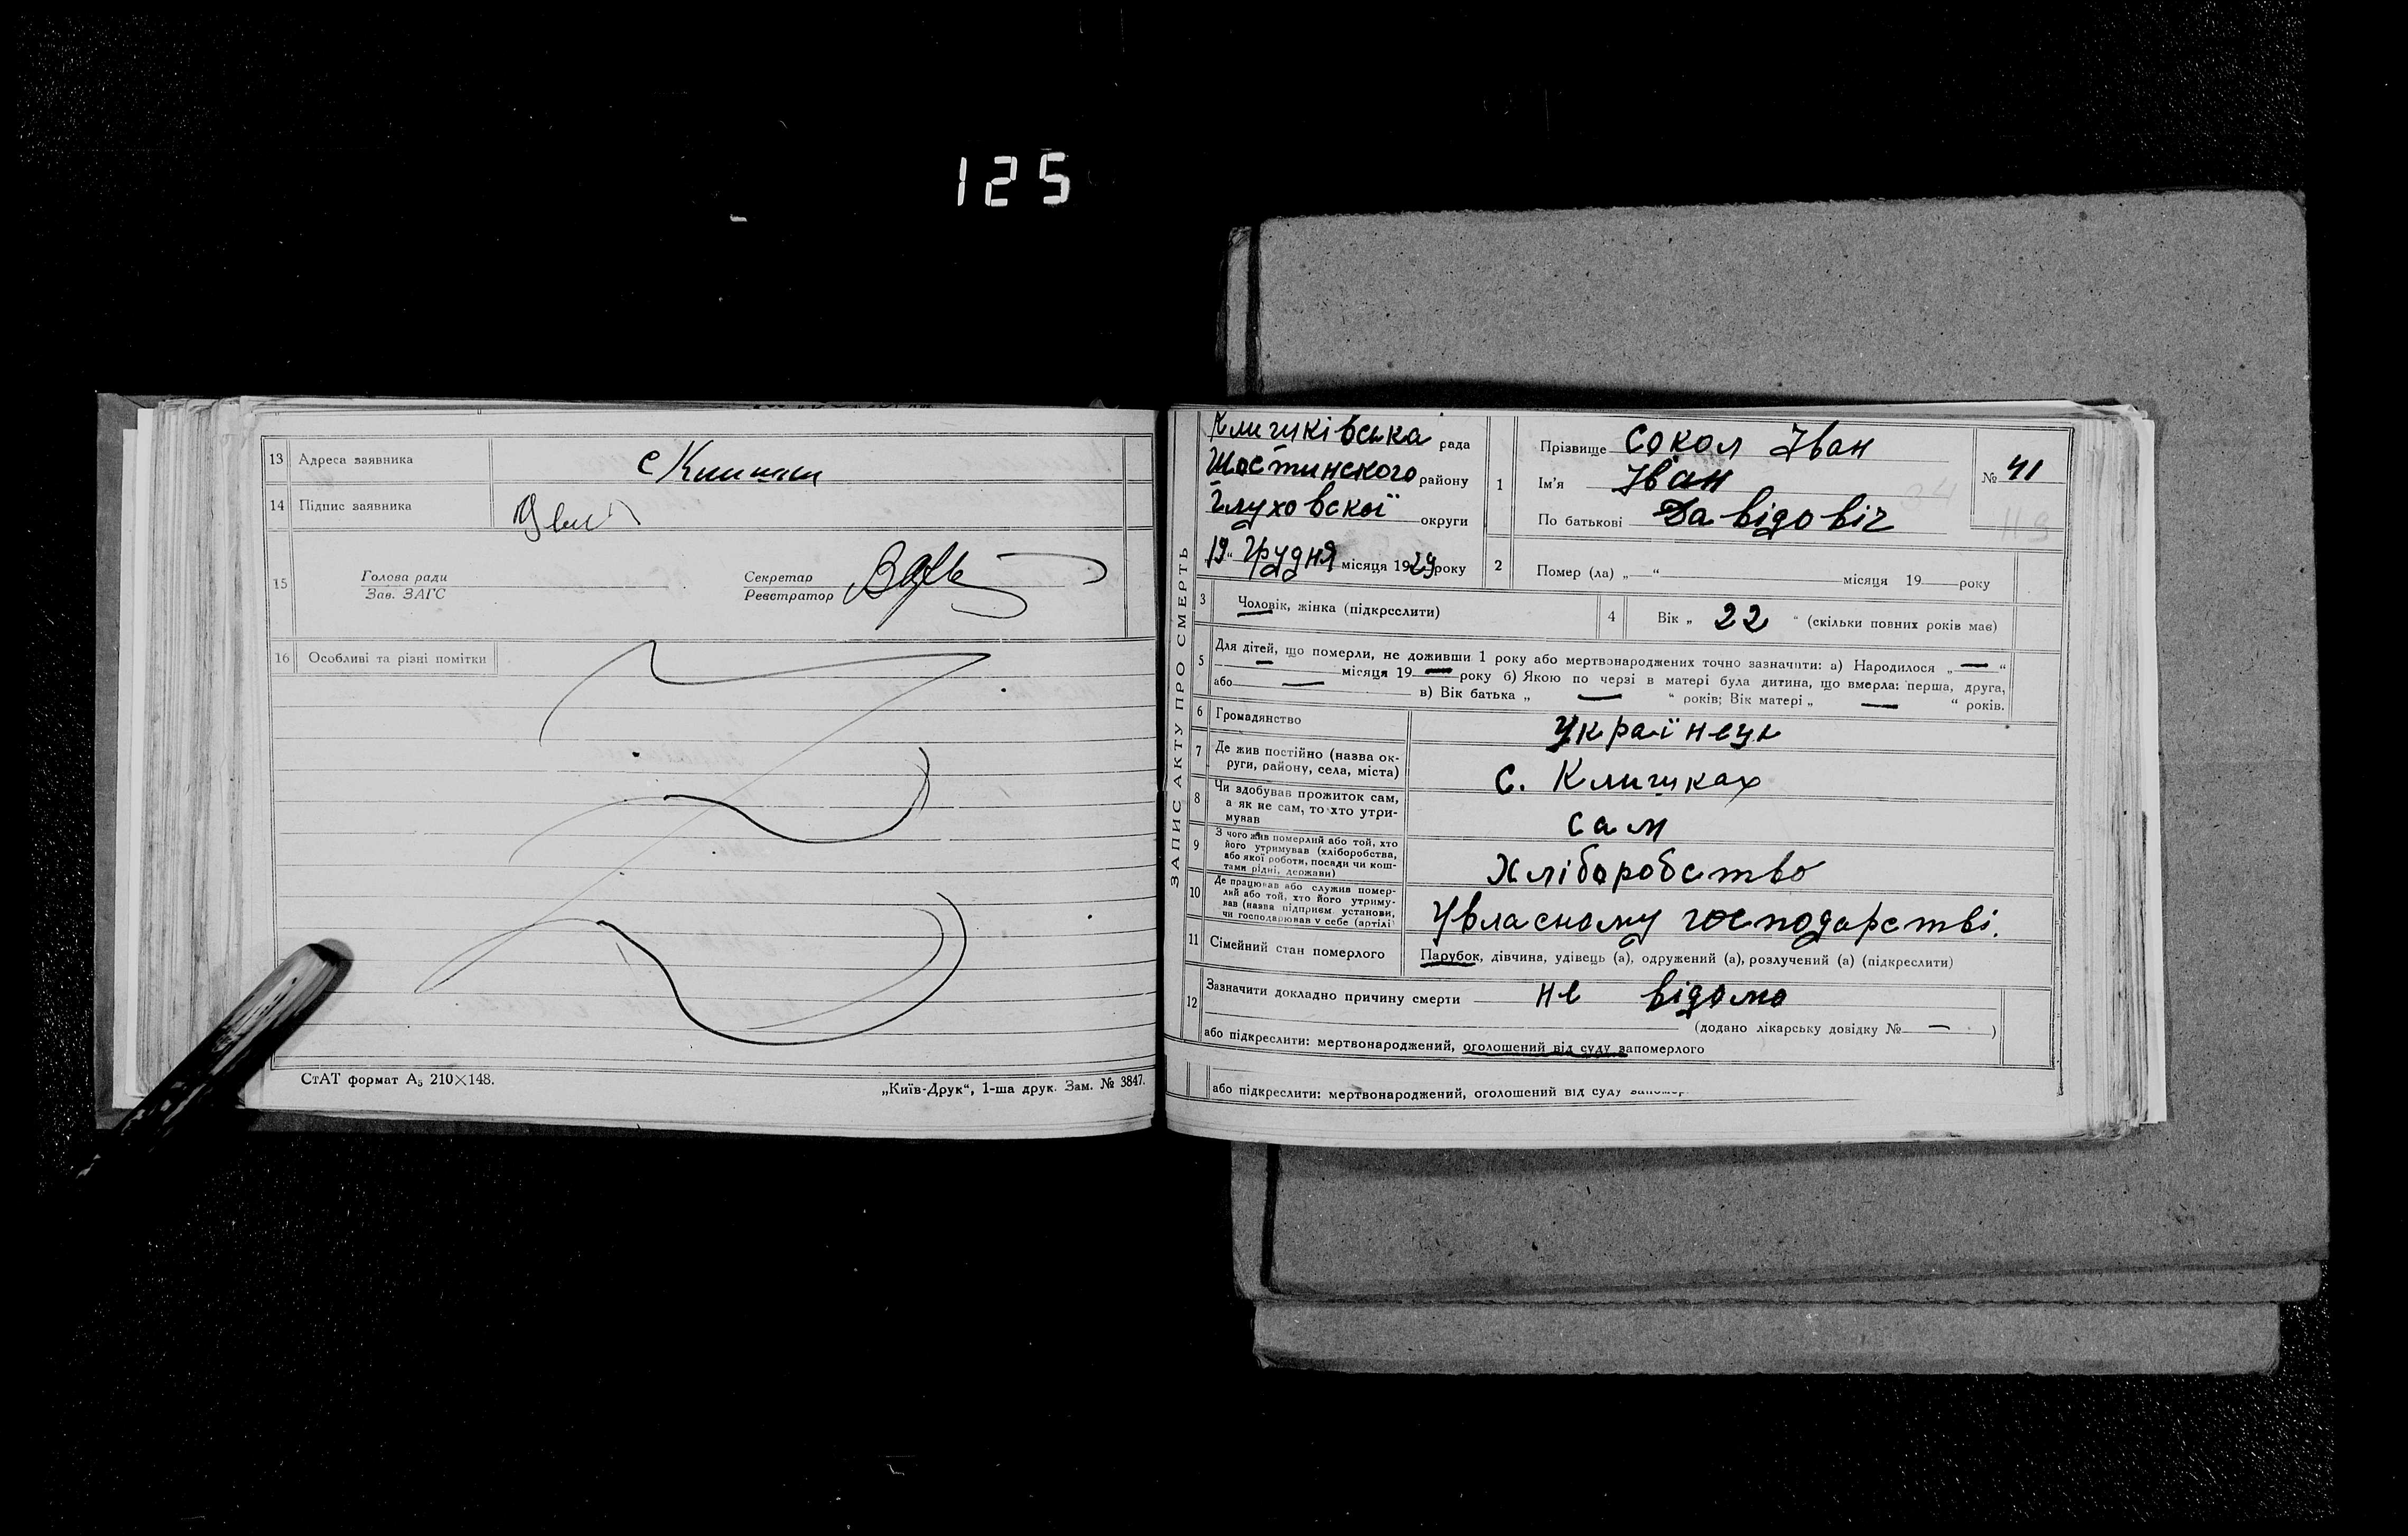 125
13 Адреса заявника с Клишки
14 Підпис заявника
15 Голова ради
Зав. ЗАГС
Секретар
Реєстратор
16 Особливі та різні помітки
СтАТ формат А₅ 210×148.
„Київ-Друк“, 1-ша друк. Зам. № 3847.
ЗАПИС АКТУ ПРО СМЕРТЬ
Клишківська рада
Шостинского району
Глуховскої округи
19 “ Грудня місяця 1929 року
1 Прізвище Сокол Іван
Ім'я Іван
По батькові Давідовіч
№ 41
2 Помер (ла) „ “ місяця 19 року
3 Чоловік, жінка (підкреслити)
4 Вік „ 22 “ (скільки повних років мав)
5 Для дітей, що померли, не доживши 1 року або мертвонароджених точно зазначити: а) Народилося „ — “
— місяця 19 — року б) Якою по черзі в матері була дитина, що вмерла: перша, друга,
або — в) Вік батька „ — “ років; Вік матері „ — “ років.
6 Громадянство Українець
7 Де жив постійно (назва ок-
руги, району, села, міста) с. Клишках
8 Чи здобував прожиток сам,
а як не сам, то хто утри-
мував сам
9 З чого жив померлий або той, хто
його утримував (хліборобства,
або якої роботи, посади чи кош-
тами рідні, держави) Хліборобство
10 Де працював або служив помер-
лий або той, хто його утриму-
вав (назва підприєм. установи,
чи господарював у себе (артілі) Увласному господарстві.
11 Сімейний стан померлого Парубок, дівчина, удівець (а), одружений (а), розлучений (а) (підкреслити)
12 Зазначити докладно причину смерти не відомо
(додано лікарську довідку № — )
або підкреслити: мертвонароджений, оголошений від суду запомерлого
або підкреслити: мертвонароджений, оголошений від суду